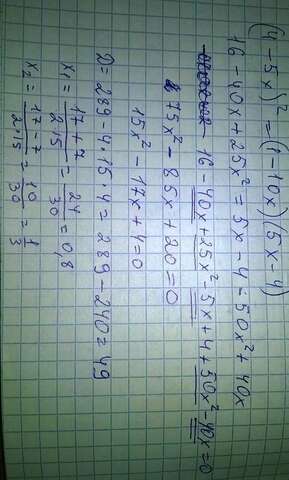 (4-5x)² = (1-10x)(5x-4)
16-40x+25x² = 5x-4-50x²+40x
16-40x+25x²-5x+4+50x²-40x=0
75x²-85x+20=0
15x²-17x+4=0
D=289-4·15·4=289-240=49
x₁ = (17+7)/(2·15) = 24/30 = 0,8
x₂ = (17-7)/(2·15) = 10/30 = 1/3